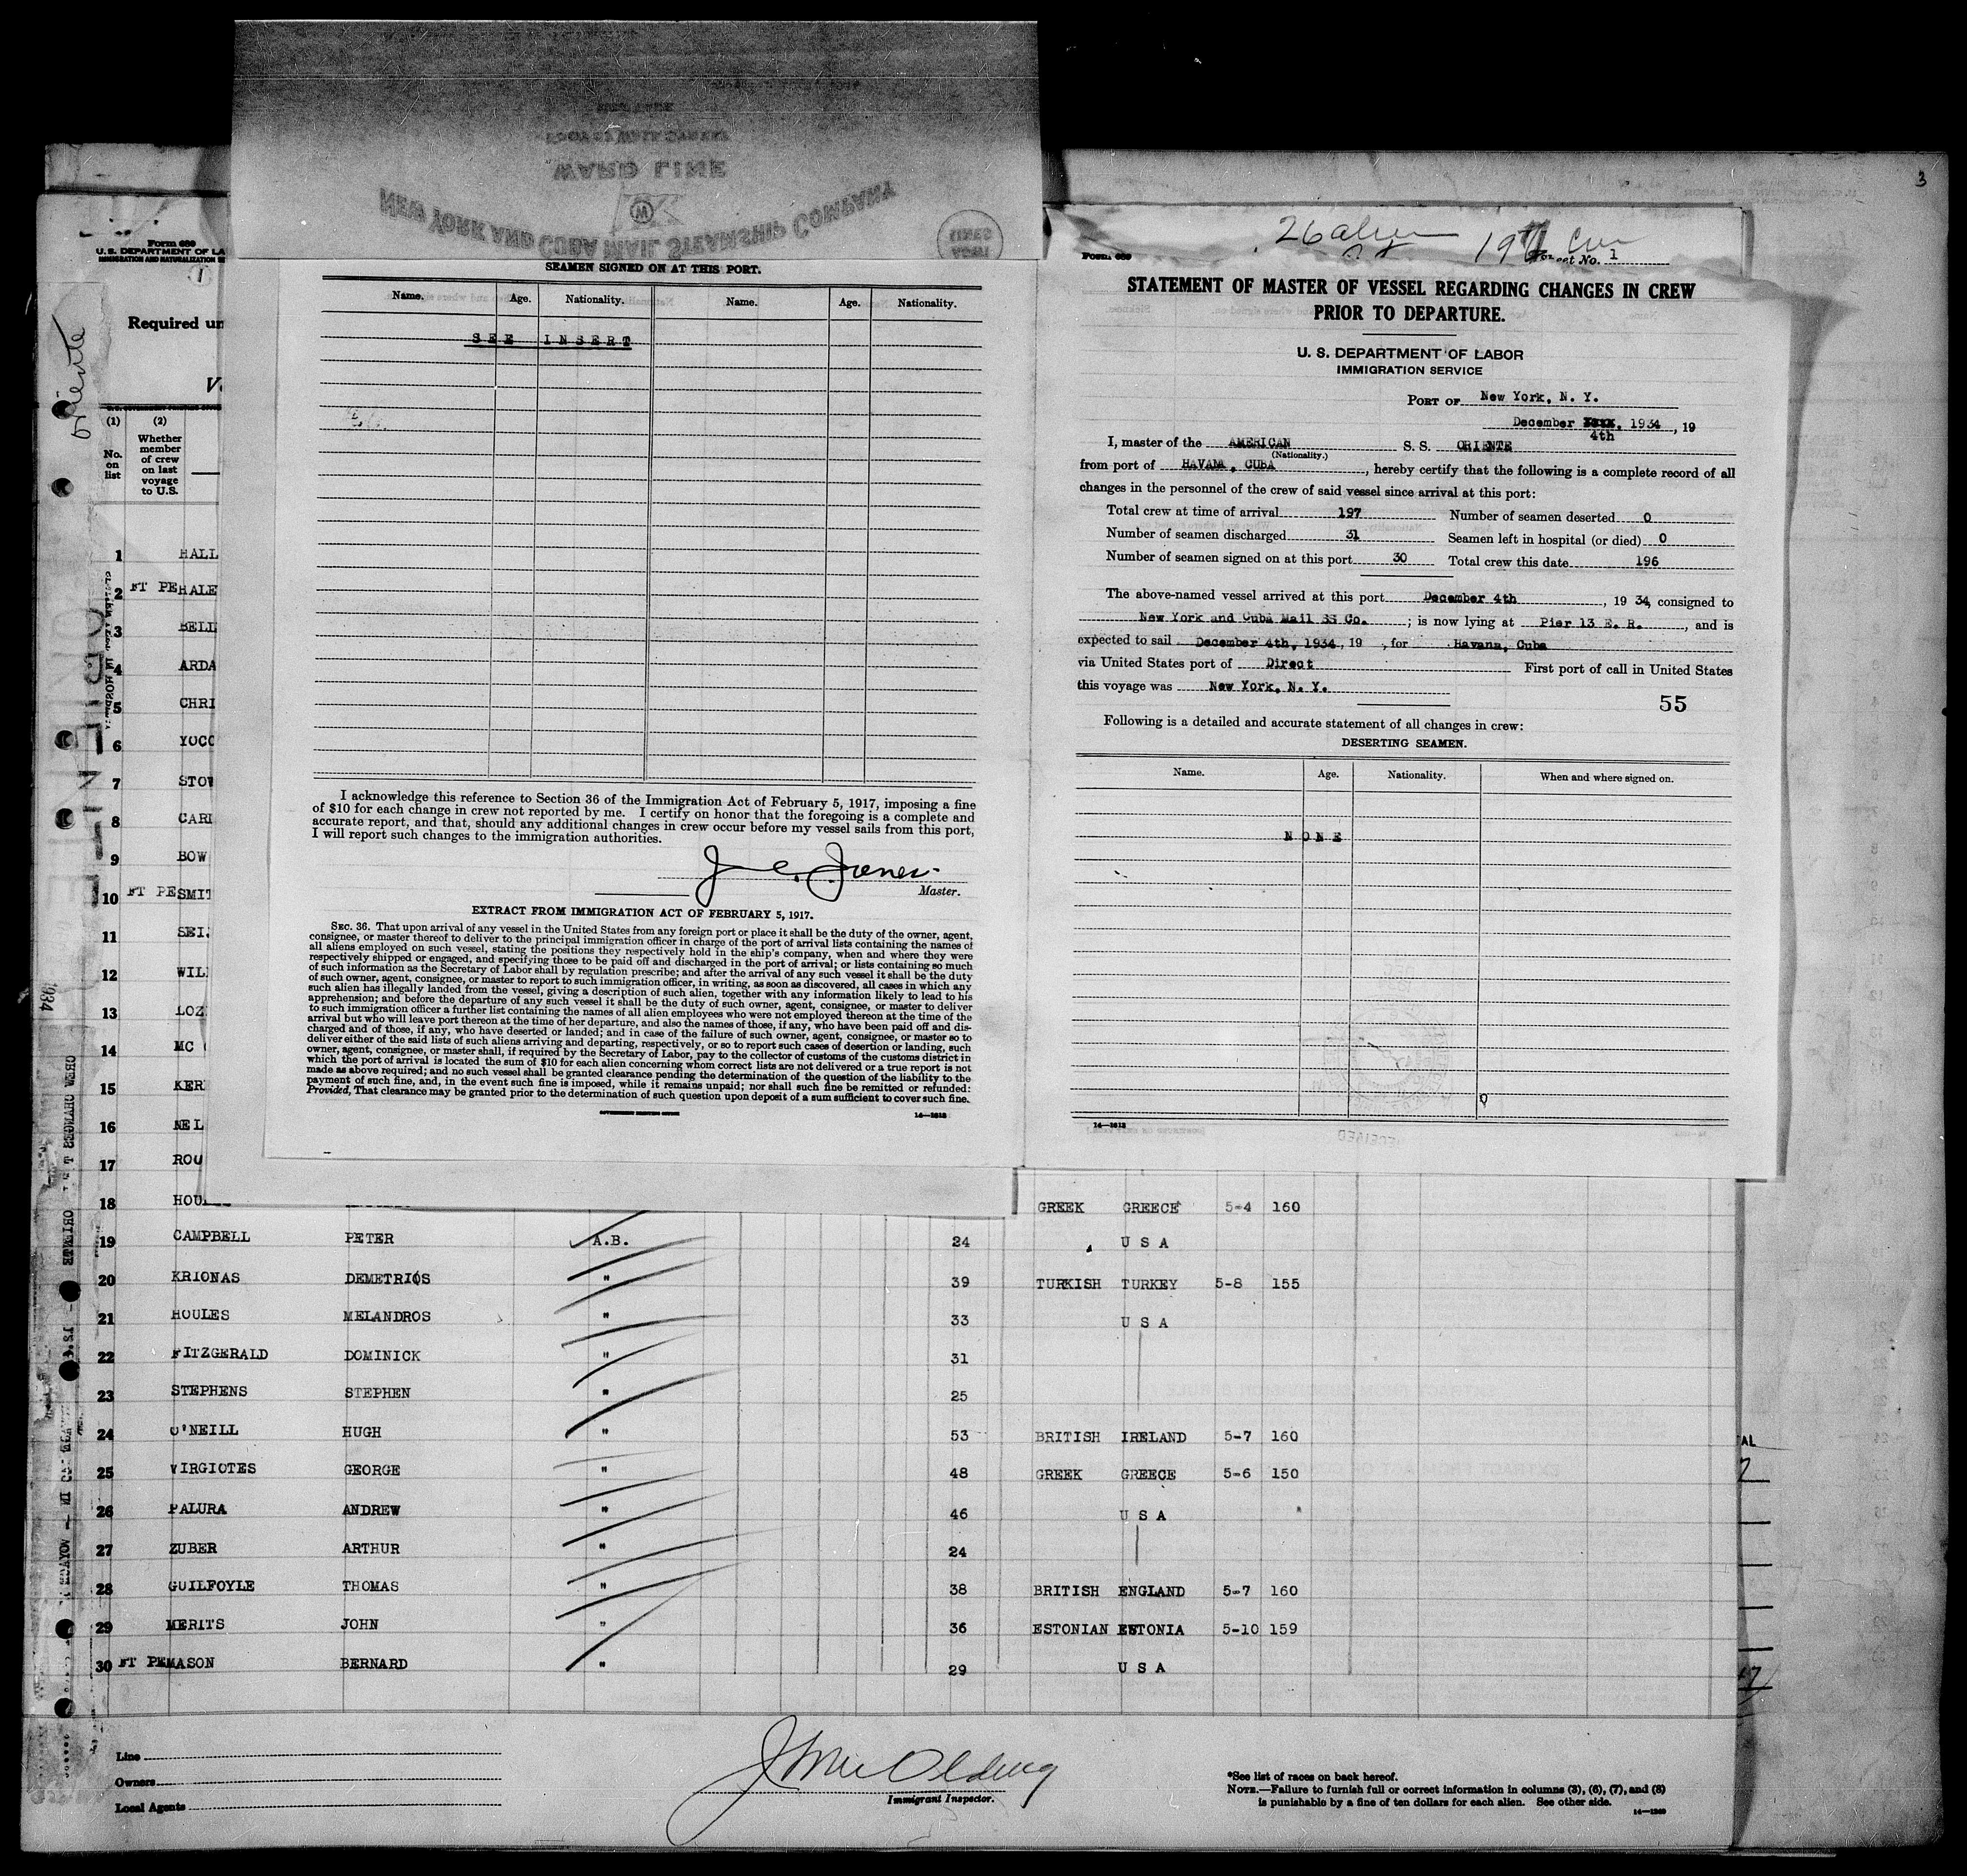 WARD LINE
NEW YORK AND CUBA MAIL STEAMSHIP COMPANY
3
SEAMEN SIGNED ON AT THIS PORT.
Name. Age. Nationality. Name. Age. Nationality.
SEE INSERT
I acknowledge this reference to Section 36 of the Immigration Act of February 5, 1917, imposing a fine
of $10 for each change in crew not reported by me. I certify on honor that the foregoing is a complete and
accurate report, and that, should any additional changes in crew occur before my vessel sails from this port,
I will report such changes to the immigration authorities.
Master.
EXTRACT FROM IMMIGRATION ACT OF FEBRUARY 5, 1917.
SEC. 36. That upon arrival of any vessel in the United States from any foreign port or place it shall be the duty of the owner, agent,
consignee, or master thereof to deliver to the principal immigration officer in charge of the port of arrival lists containing the names of
all aliens employed on such vessel, stating the positions they respectively hold in the ship's company, when and where they were
respectively shipped or engaged, and specifying those to be paid off and discharged in the port of arrival; or lists containing so much
of such information as the Secretary of Labor shall by regulation prescribe; and after the arrival of any such vessel it shall be the duty
of such owner, agent, consignee, or master to report to such immigration officer, in writing, as soon as discovered, all cases in which any
such alien has illegally landed from the vessel, giving a description of such alien, together with any information likely to lead to his
apprehension; and before the departure of any such vessel it shall be the duty of such owner, agent, consignee, or master to deliver
to such immigration officer a further list containing the names of all alien employees who were not employed thereon at the time of the
arrival but who will leave port thereon at the time of her departure, and also the names of those, if any, who have been paid off and dis-
charged and of those, if any, who have deserted or landed; and in case of the failure of such owner, agent, consignee, or master so to
deliver either of the said lists of such aliens arriving and departing, respectively, or so to report such cases of desertion or landing, such
owner, agent, consignee, or master shall, if required by the Secretary of Labor, pay to the collector of customs of the customs district in
which the port of arrival is located the sum of $10 for each alien concerning whom correct lists are not delivered or a true report is not
made as above required; and no such vessel shall be granted clearance pending the determination of the question of the liability to the
payment of such fine, and, in the event such fine is imposed, while it remains unpaid; nor shall such fine be remitted or refunded:
Provided, That clearance may be granted prior to the determination of such question upon deposit of a sum sufficient to cover such fine.
GOVERNMENT PRINTING OFFICE 14—2612
Form 689
Sheet No. 1
STATEMENT OF MASTER OF VESSEL REGARDING CHANGES IN CREW
PRIOR TO DEPARTURE.
U. S. DEPARTMENT OF LABOR
IMMIGRATION SERVICE
PORT OF New York, N. Y.
December 4th, 1934, 19
I, master of the AMERICAN S. S. ORIENTE
(Nationality.)
from port of HAVANA, CUBA, hereby certify that the following is a complete record of all
changes in the personnel of the crew of said vessel since arrival at this port:
Total crew at time of arrival 197 Number of seamen deserted 0
Number of seamen discharged 31 Seamen left in hospital (or died) 0
Number of seamen signed on at this port 30 Total crew this date 196
The above-named vessel arrived at this port December 4th, 19 34, consigned to
New York and Cuba Mail SS Co.; is now lying at Pier 13 E. R., and is
expected to sail December 4th, 1934, 19 , for Havana, Cuba
via United States port of Direct First port of call in United States
this voyage was New York, N. Y.
55
Following is a detailed and accurate statement of all changes in crew:
DESERTING SEAMEN.
Name. Age. Nationality. When and where signed on.
NONE
14—2612
Form 689
U. S. DEPARTMENT OF LA
Required un
Oriente
(1) (2)
No. on list
Whether member of crew on last voyage to U.S.
1 HALL
2 FT PE HALE
3 BELL
4 ARDA
5 CHRI
6 YOCC
7 STOW
8 CARL
9 BOW
10 FT PE SMIT
11 SEI
12 WIL
13 LOZ
14 MC
15 KER
16 NEL
17 ROU
18 HOU GREEK GREECE 5-4 160
19 CAMPBELL PETER A.B. 24 U S A
20 KRIONAS DEMETRIOS " 39 TURKISH TURKEY 5-8 155
21 HOULES MELANDROS " 33 U S A
22 FITZGERALD DOMINICK " 31
23 STEPHENS STEPHEN " 25
24 O'NEILL HUGH " 53 BRITISH IRELAND 5-7 160
25 VIRGIOTES GEORGE " 48 GREEK GREECE 5-6 150
26 PALURA ANDREW " 46 U S A
27 ZUBER ARTHUR " 24
28 GUILFOYLE THOMAS " 38 BRITISH ENGLAND 5-7 160
29 MERITS JOHN " 36 ESTONIAN ESTONIA 5-10 159
30 FT PE MASON BERNARD " 29 U S A
Line
Owners
Local Agents
Immigrant Inspector.
*See list of races on back hereof.
NOTE.—Failure to furnish full or correct information in columns (3), (6), (7), and (8)
is punishable by a fine of ten dollars for each alien. See other side.